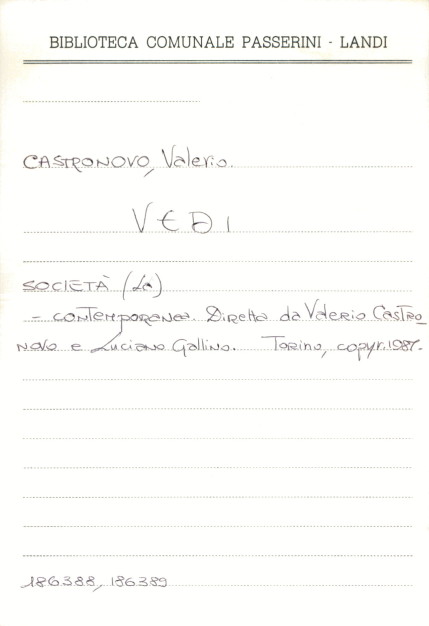 BIBLIOTECA COMUNALE PASSERINI - LANDI
CASTRONOVO, Valerio.
VEDI
SOCIETÀ (La)
- contemporanea. Diretta da Valerio Castro-
novo e Luciano Gallino. Torino, copyr. 1987.
186388, 186389